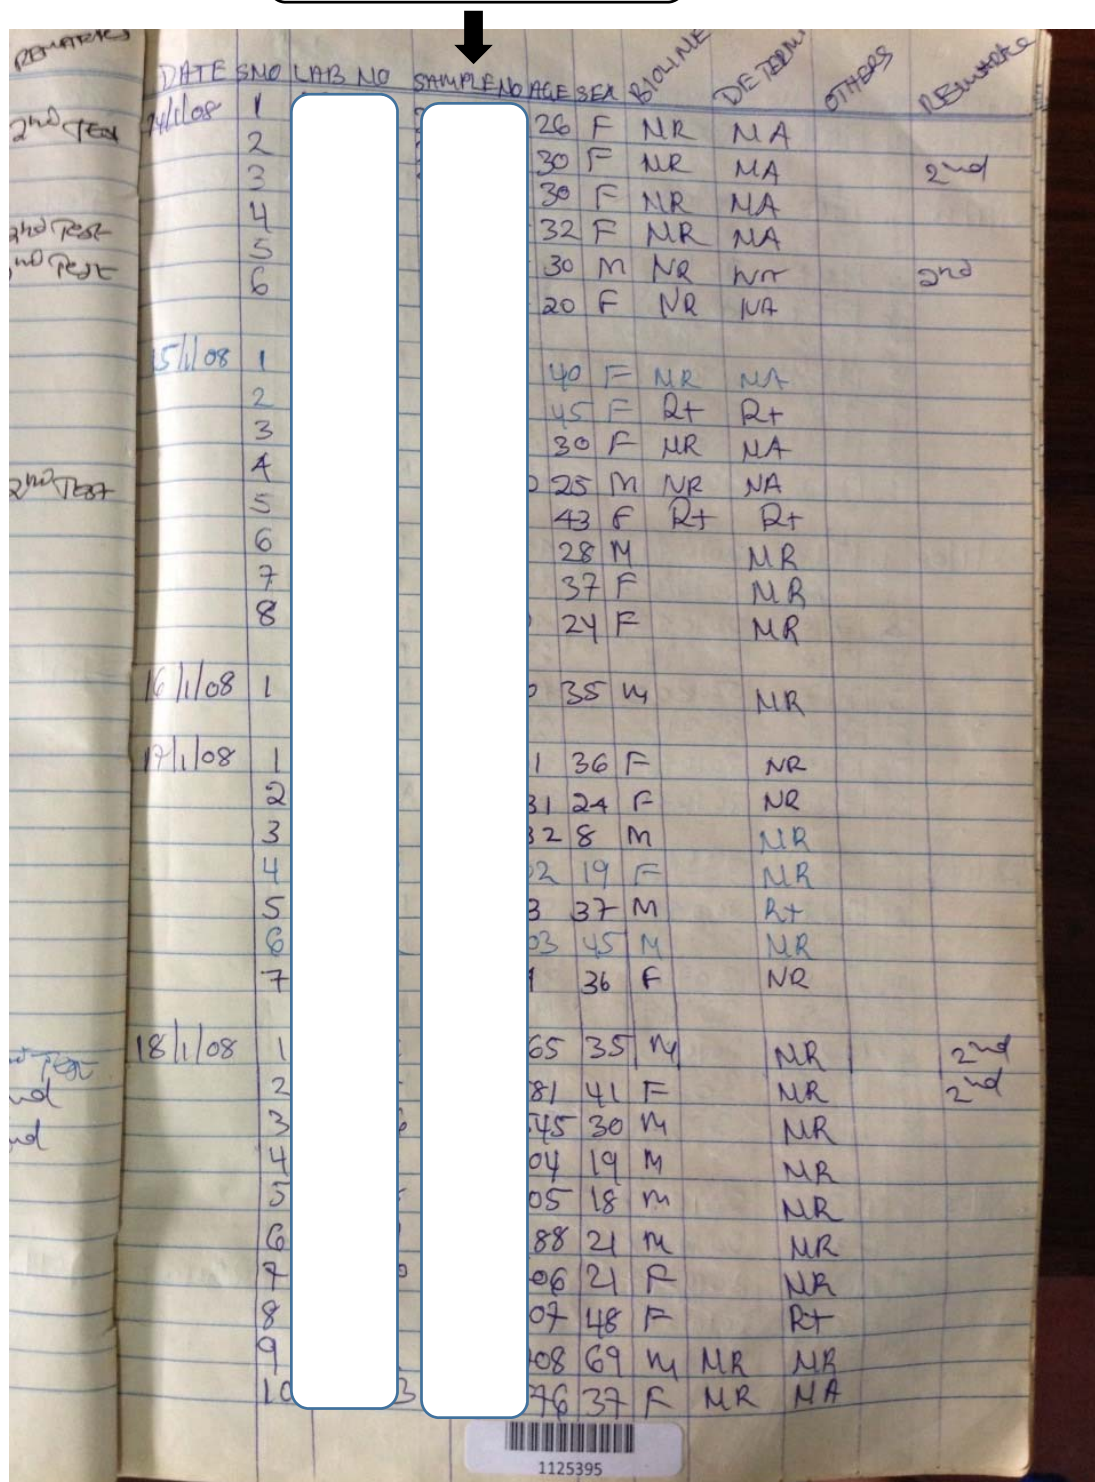 REMARKS
DATE SNO LAB NO SAMPLE NO AGE SEX BIOLINE DETERMI OTHERS REMARKS
2nd TEST
14/1/08 1 26 F NR NA
2 30 F NR NA 2nd
3 30 F NR NA
2nd Test
4 32 F NR NA
nd Test
5 30 M NR NA 2nd
6 20 F NR NA
15/1/08 1 40 F NR NA
2 45 F R+ R+
3 30 F NR NA
2nd TEST
4 25 M NR NA
5 43 F R+ R+
6 28 M NR
7 37 F NR
8 24 F NR
16/1/08 1 35 M NR
17/1/08 1 1 36 F NR
2 31 24 F NR
3 32 8 M NR
4 02 19 F NR
5 3 37 M R+
6 03 45 M NR
7 36 F NR
18/1/08 1 65 35 M NR 2nd
Test
2 81 41 F NR 2nd
nd
3 545 30 M NR
nd
4 04 19 M NR
5 05 18 M NR
6 88 21 M NR
7 06 21 F NR
8 07 48 F R+
9 08 69 M NR NR
10 3 76 37 F NR NA
1125395